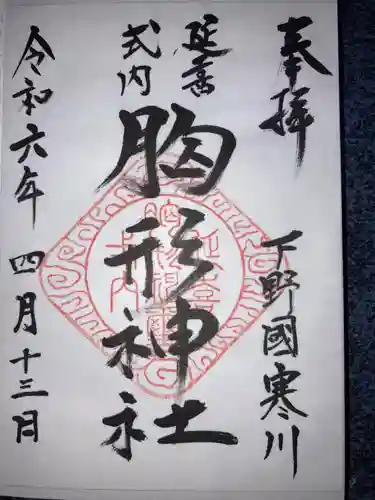 奉拝
下野國寒川
延喜
式内
胸形神社
令和六年 四月十三日